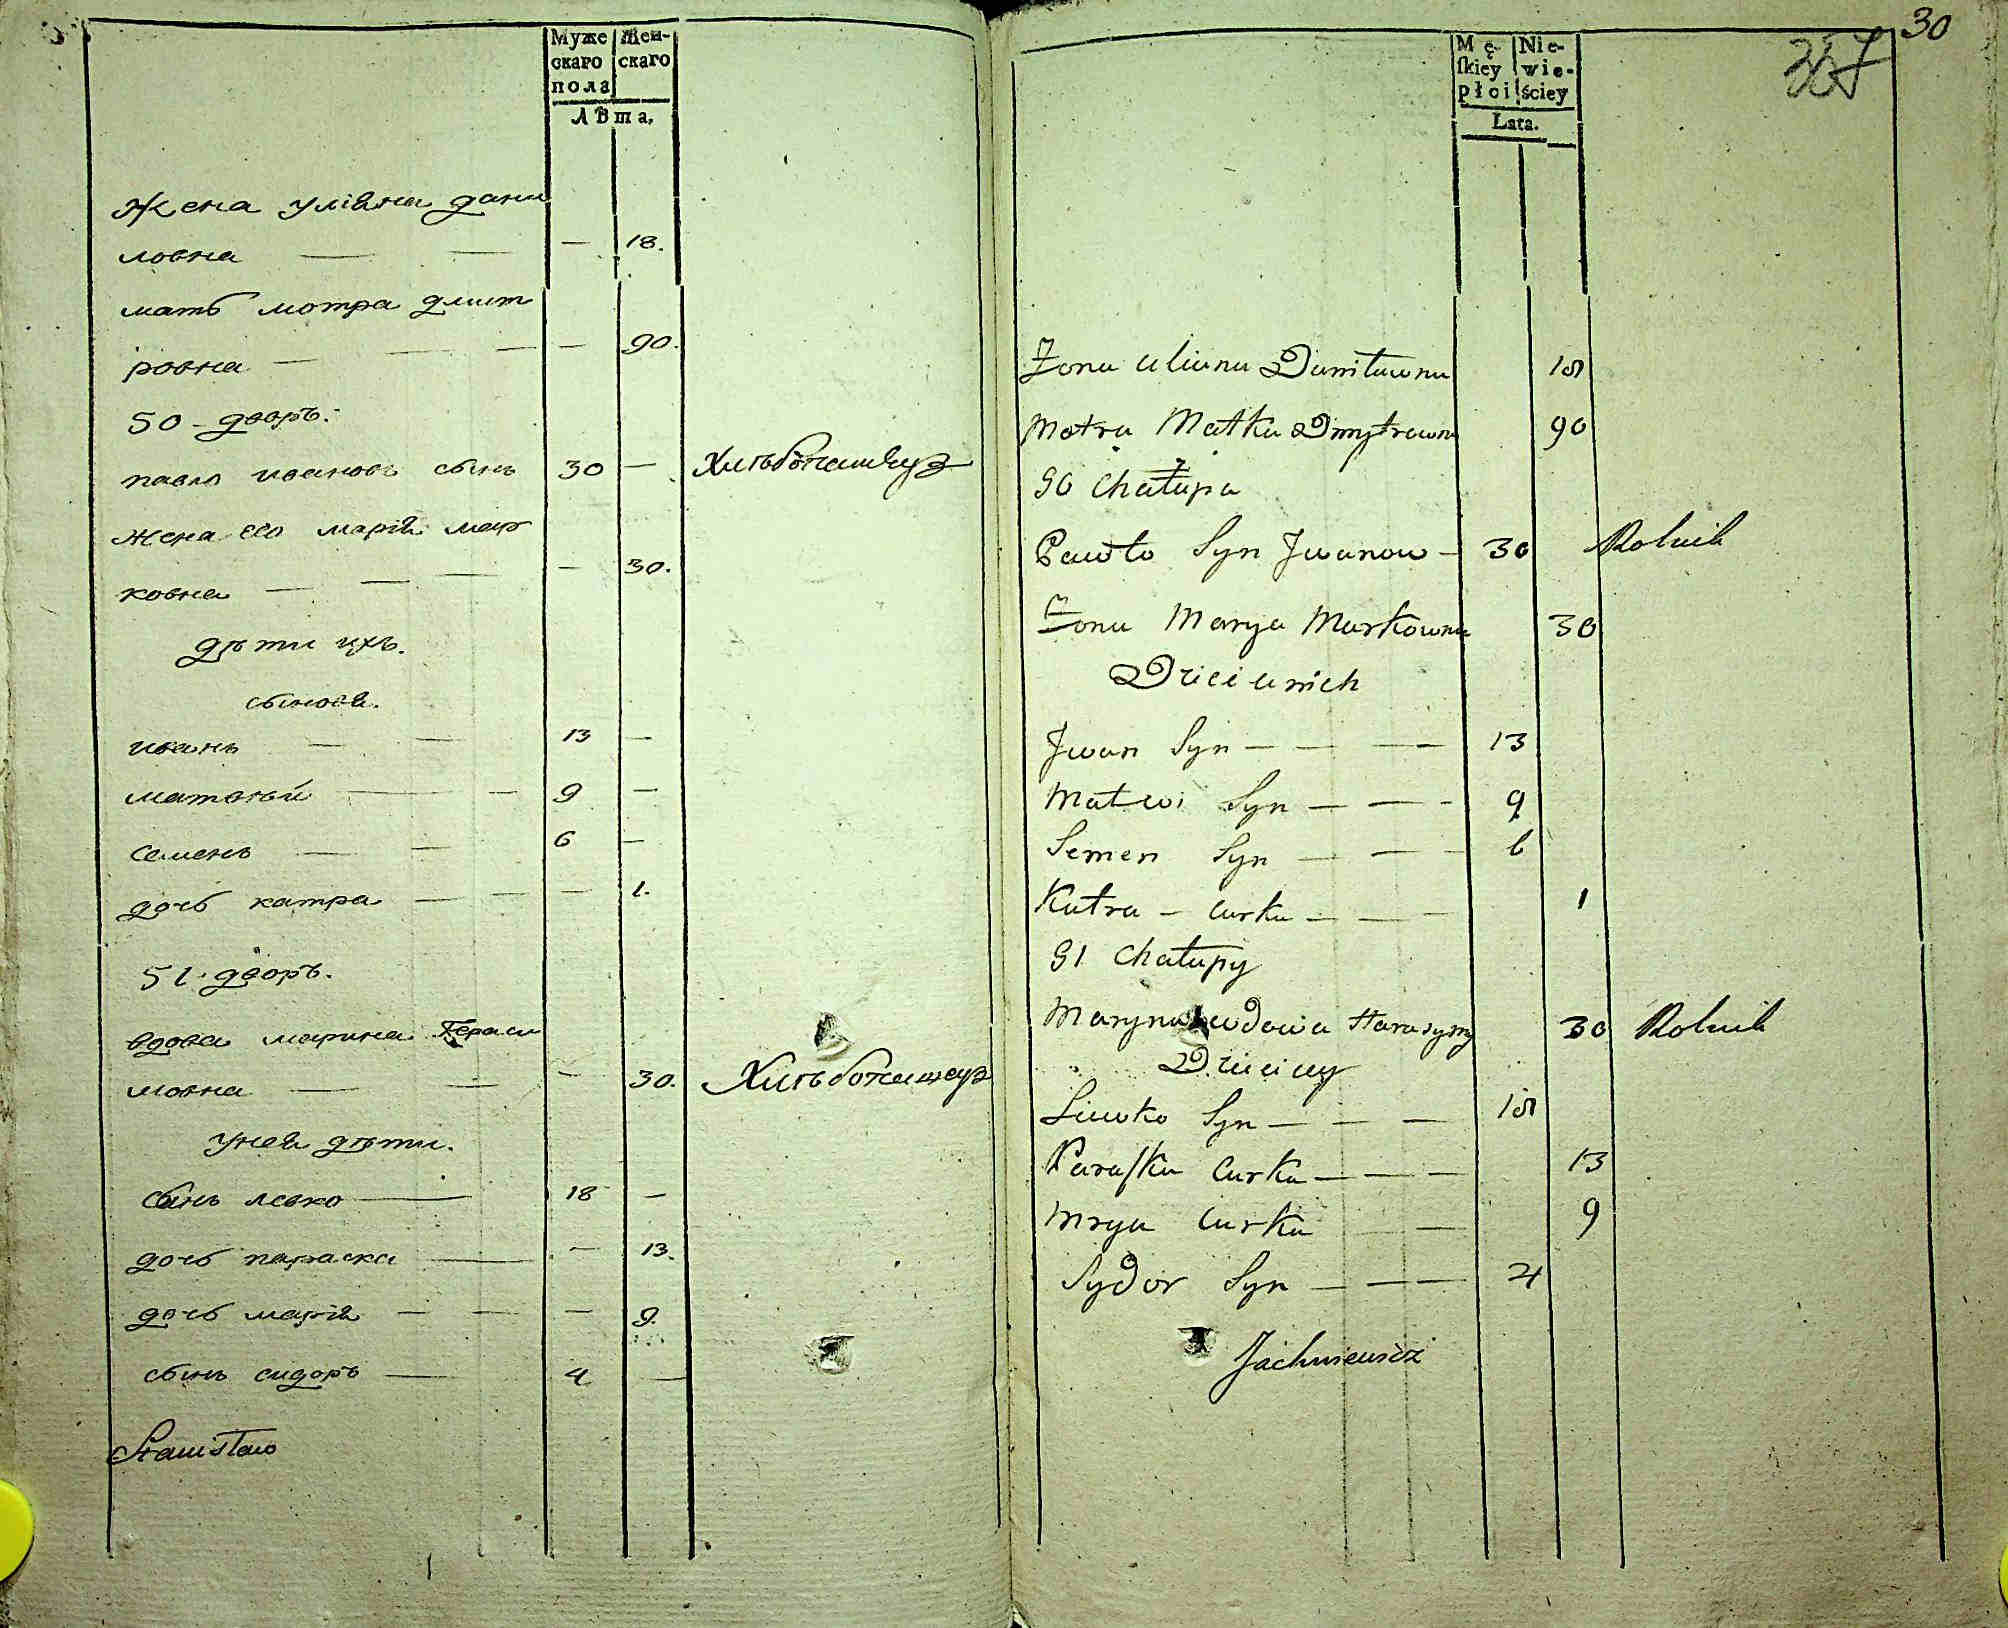 Муже Жен-
скаго скаго
пола
лѣта,
жена улiяна дани
ловна — — — 18.
мать мотра дмит
ровна — — — — 90.
50 дворъ.
павло ивановъ сынъ 30 — Хлѣбопашецъ
жена его марiя мар
ковна — — — — 30.
дѣти ихъ.
сыновя.
иванъ — — 13 —
матвѣй — — 9 —
семенъ — — 6 —
дочь катра — — — 1.
51 дворъ.
вдова марина Гераси
мовна — — — 30. Хлѣбопашецъ
унея дѣти.
сынъ левко — 18 —
дочь параска — — 13.
дочь марiя — — — 9.
сынъ сидоръ — 4 —
Stanisław
30
Mę- Nie-
ſkiey wie-
płci ściey
Lata.
Żona Uliana Daniławna 18
Motra Matka Dmytrawna 90
50 Chałupa
Pawło Syn Jwanow — 30 Rolnik
Żona Marya Markowna 30
Dzieci u nich
Jwan Syn — — — 13
Matwi Syn — — - 9
Semen Syn — — — 6
Katra — Curka — — — 1
51 Chałupy
Maryna wdowa Harasym 30 Rolnik
Dzieci uy
Liwko Syn — — — 18
Paraſka Curka — — — 13
Mrya Curka — 9
Sydor Syn — — — 4
Jachniewicz